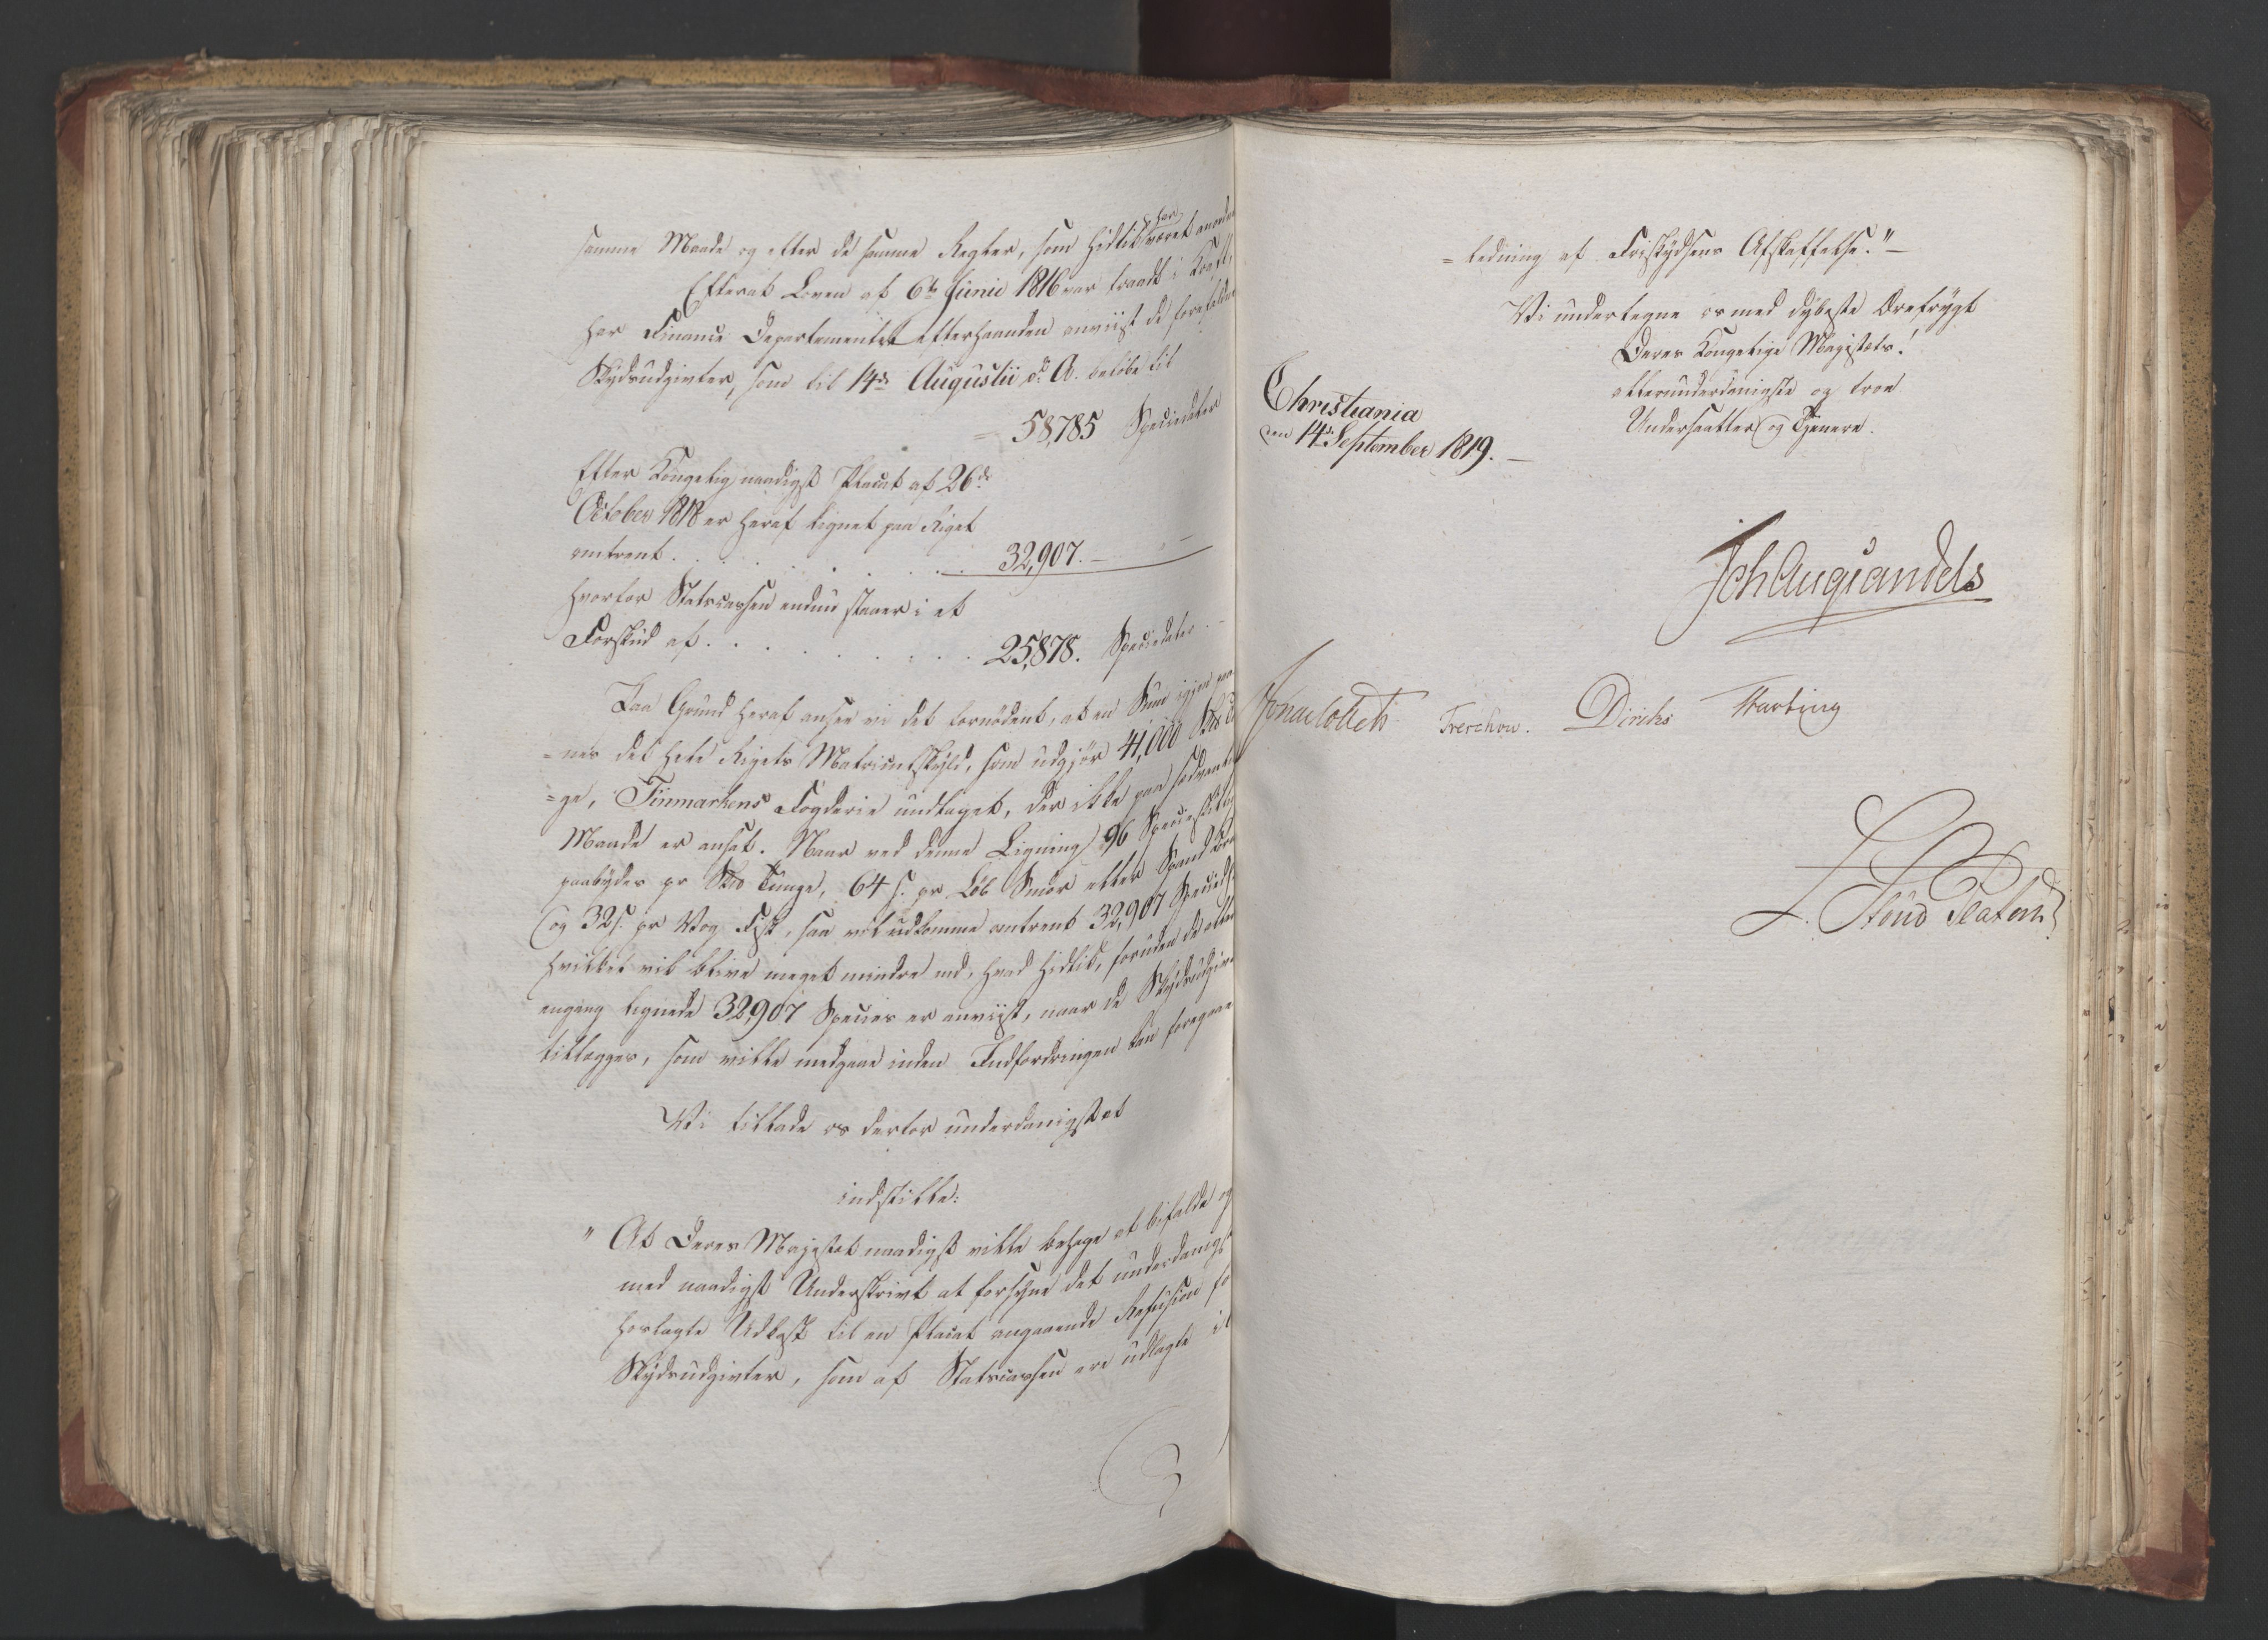 samme Maade og efter de samme Regler, som hidtil har været
Efterat Loven af 6te Junii 1816 var traadt i Kraft,
har Finants Departementet efterhaanden anviist de forefaldne
Skydsudgivter, som til 14de Augustii d: A. beløbe til
= 58,785 Speciedaler
Efter Kongelig naadigst Placat af 26de
October 1818 er heraf lignet paa Riget
omtrent . . . . . . . . . 32,907. –
hvorfor Statscassen endnu staaer i et
Forskud af . . . . . . . . . 25,878. Speciedaler. –
Paa Grund heraf ansee vi det fornødent, at en Sum igjen
=nes det hele Rigets Matriculskyld, som udgjør 41,000 Skd
=ge, Finmarkens Fogderie undtaget, der ikke paa sædvanlig
Maade er ansat. Naar ved denne Ligning 96 Specieskilling
paabydes pr Skd Tunge, 64 s. pr Løb Smør eller Spand
og 32 s. pr Vog Fisk, saa vil udkomme omtrent 32,907 Species,
hvilket vil blive meget mindre end, hvad hidtil, foruden de
engang lignede 32,907 Species er anviist, naar de Skydsudgivter
tillægges, som ville medgaae inden Indfordringen kan foregaae
Vi tillade os derfor underdanigst at
indstille:
" At Deres Majestæt naadigst ville behage at bifalde og
med naadigst Underskrivt at forsyne det underdanigst
forlagte Udkast til en Placat angaaende Refusion for
Skydsudgivter, som af Statscassen ere udlagte i
=ledning af Friskydsens Afskaffelse." –
Vi undertegne os med dybeste Ærefrygt
Deres Kongelige Majestæts!
allerunderdanigste og troe
Undersaatter og Tjenere.
Christiania
den 14de September 1819. –
Joh Aug Sandels
Jonas Collett Treschow. Diriks Harbing
L. Stoud Platou